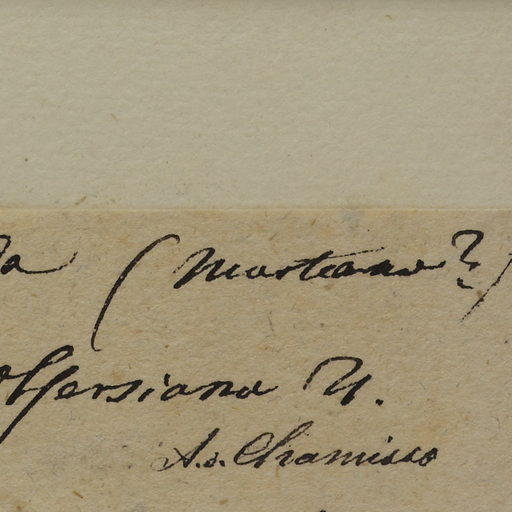 da (Mosteana?)
olfersiana N.
A. v. Chamisso